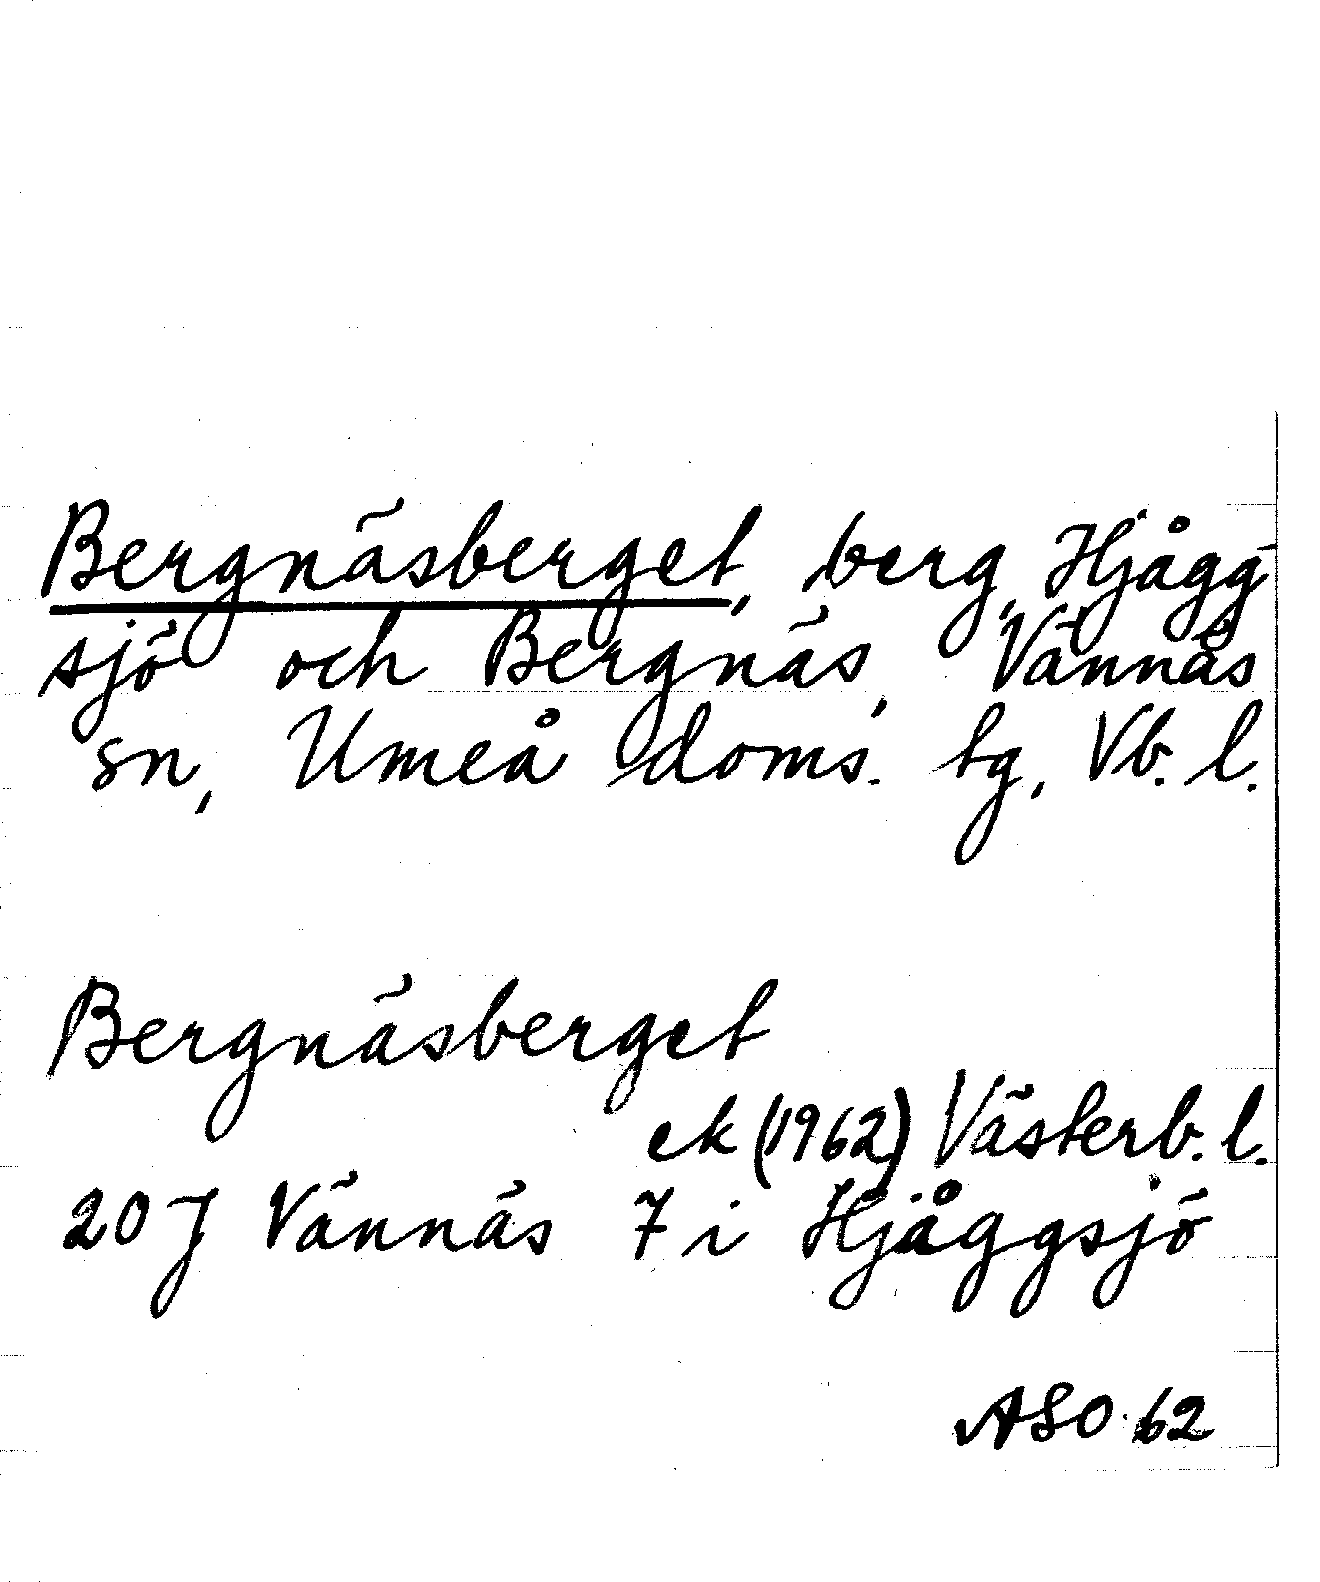 Bergnäsberget, berg, Hjågg-
sjö och Bergnäs, Vännäs
sn, Umeå doms. tg, Vb. l.
Bergnäsberget
ek (1962) Västerb. l.
20 J Vännäs 7 i Hjåggsjö
ASO 62